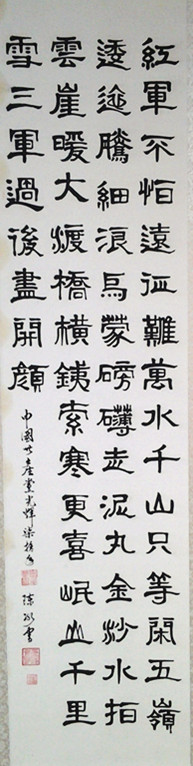 紅軍不怕遠征難萬水千山只等閑五嶺
逶迤騰細浪烏蒙磅礴走泥丸金沙水拍
雲崖暖大渡橋橫鐵索寒更喜岷山千里
雪三軍過後盡開顏
中國共產黨